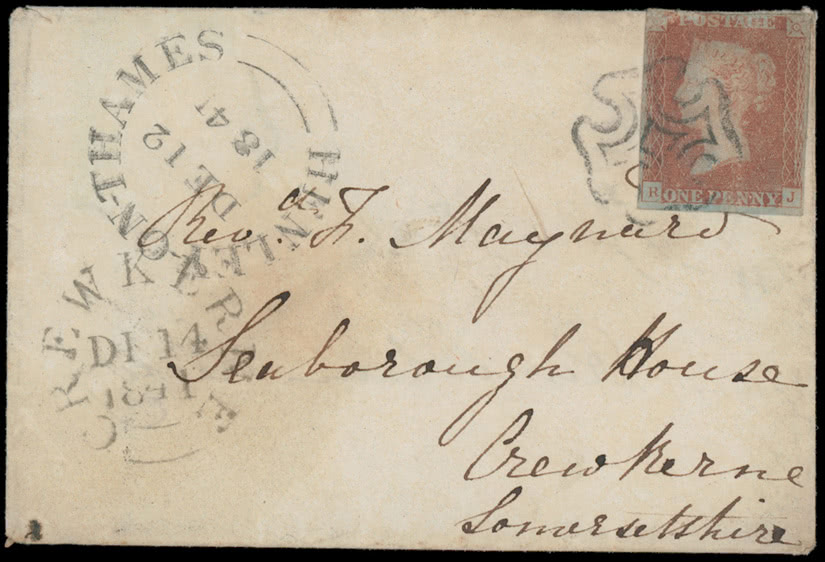 HENLEY-ON-THAMES
DE 12
1841
CREWKERNE
DE 14
1841
POSTAGE
ONE PENNY
R J
Revd. F. Maynard
Seaborough House
Crewkerne
Somersetshire